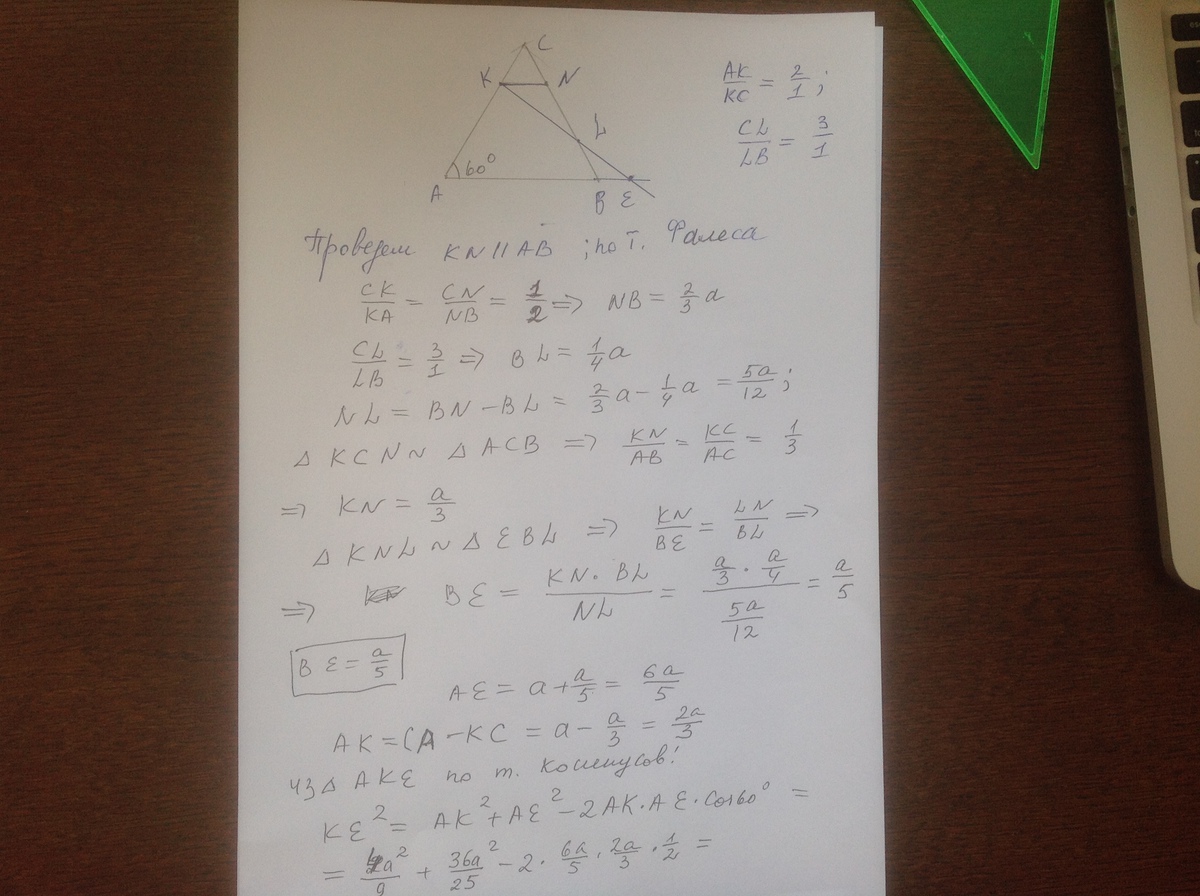 C
K N
L
60°
A B E
AK/KC = 2/1 ;
CL/LB = 3/1
Проведем KN || AB ; по т. Фалеса
CK/KA = CN/NB = 1/2 => NB = 2/3 a
CL/LB = 3/1 => BL = 1/4 a
NL = BN - BL = 2/3 a - 1/4 a = 5a/12 ;
△ KCN ~ △ ACB => KN/AB = KC/AC = 1/3
=> KN = a/3
△ KNL ~ △ EBL => KN/BE = LN/BL =>
=> BE = KN · BL / NL = (a/3 · a/4) / (5a/12) = a/5
BE = a/5
AE = a + a/5 = 6a/5
AK = CA - KC = a - a/3 = 2a/3
Из △ AKE по т. косинусов:
KE² = AK² + AE² - 2AK · AE · cos60° =
= 4a²/9 + 36a²/25 - 2 · 6a/5 · 2a/3 · 1/2 =